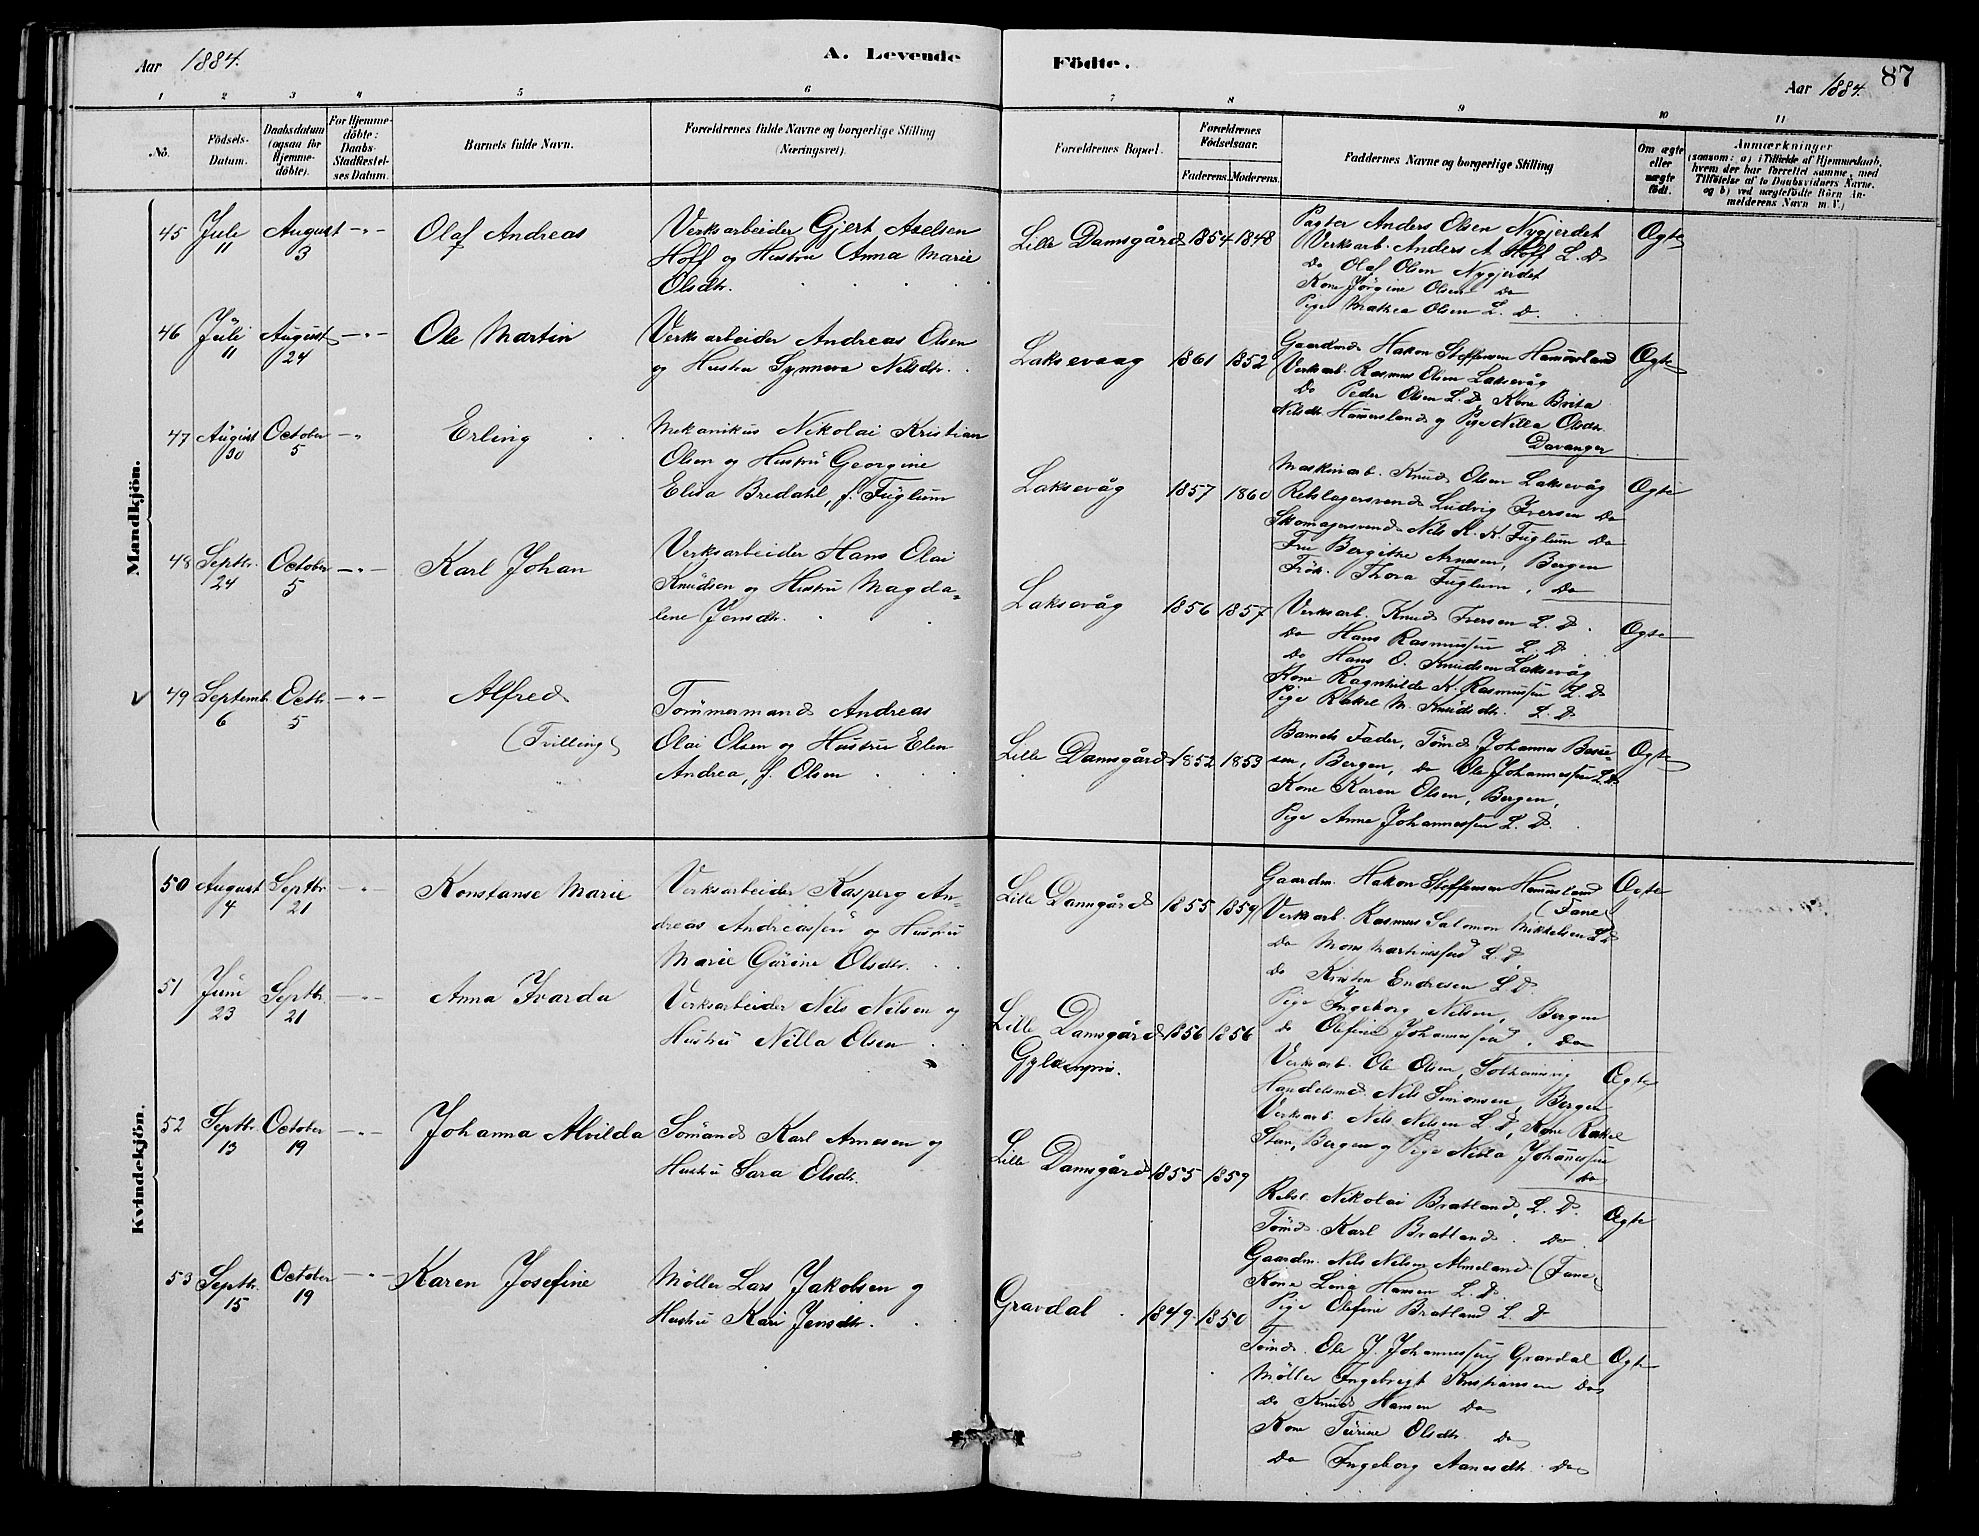 Aar 1884.
A. Levende
1 2 3 4 5 6
No.
Födsels-
Datum.
Daabsdatum
(ogsaa for
Hjemme-
döbte).
For Hjemme-
döbte:
Daabs-
Stadfæstel-
ses Datum.
Barnets fulde Navn.
Forældrenes fulde Navne og borgerlige Stilling
(Næringsvei).
Mandkjön.
45 Juli 11 August 3 -"- Olaf Andreas Verksarbeider Gjert Axelsen
Hoff og Hustru Anna Marie
Olsdtr.
46 Juli 11 August 24 -"- Ole Martin Verksarbeider Andreas Olsen
og Hustru Synneva Nilsdtr.
47 August 30 October 5 -"- Erling Mekanikus Nikolai Kristian
Olsen og Hustru Georgine
Elisa Bredahl, f. Fuglum
48 Septbr. 24 October 5 -"- Karl Johan Verksarbeider Hans Olai
Knudsen og Hustru Magda-
lene Jensdtr.
49 Septembr. 6 Octbr. 5 -"- Alfred
(Tvilling)
Tömmermand Andreas
Olai Olsen og Hustru Elen
Andrea, f. Olsen
Kvindekjön.
50 August 4 Septbr. 21 -"- Konstanse Marie Verksarbeider Kasperg An-
dreas Andreassen og Hustru
Marie Gurine Olsdtr.
51 Juni 23 Septbr. 21 -"- Anna Ivarda Verksarbeider Nils Nilsen og
Hustru Nilla Olsen
52 Septbr. 13 October 19 -"- Johanna Alvilda Sömand Karl Arnesen og
Hustru Sara Olsdtr.
53 Septbr. 15 October 19 -"- Karen Josefine Möller Lars Jakobsen og
Hustru Kari Jensdtr.
Födte.
Aar 1884. 87
7 8 9 10 11
Forældrenes Bopæl.
Forældrenes
Födselsaar.
Faderens. Moderens.
Faddernes Navne og borgerlige Stilling
Om ægte
eller
uægte
födt.
Anmærkninger
(saasom: a) i Tilfælde af Hjemmedaab,
hvem der har forrettet samme, med
Tilföielse af to Daabsvidners Navne,
og b) ved uægtefödte Börn An-
melderens Navn m. V.)
Lille Damsgård 1854 1848 Anders Olsen Nygjerdet Ægte
Verksarb. Anders A. Hoff L. D.
Do Olaf Olsen Nygjerdet
Kone Jörgine Olsen Do
Pige Mathea Olsen L. D.
Laksevaag 1861 1852 Gaardmd. Hakon Steffensen Ægte
Verksarb. Rasmus Olsen Laksevåg
Do Peder Olsen L. D. Kone Brita
Nilsdtr. og Pige Nilla Olsdtr.
Davanger
Laksevåg 1857 1860 Maskinarb. Knud Olsen Laksevåg Ægte
Rebslagersvend Ludvig Iversen Do
Skomagersvend Nils K. K. Fuglum Do
Fru Bergithe Arnesen, Bergen
Frök. Thora Fuglum, Do
Laksevåg 1856 1857 Verksarb. Knud Iversen L. D. Ægte
Do Hans Rasmussen L. D.
Do Hans O. Knudsen Laksevåg
Kone Ragnhilde K. Rasmussen L. D.
Pige Rakel M. Knudsdtr. L. D.
Lille Damsgård 1852 1853 Barnets Fader, Tömd. Johannes Ægte
Bergen, do Ole Johannessen L. D.
Kone Karen Olsen, Bergen,
Pige Anne Johannessen L. D.
Lille Damsgård 1855 1859 Gaardm. Hakon Steffensen Ægte
(Fane)
Verksarb. Rasmus Salomon Mikkelsen L. D.
Do Mons Martinessen L. D.
Do Kristen Endresen L. D.
Pige Ingeborg Nilsen, Bergen
do Olefine Johannessen, Do
Lille Damsgård 1856 1856
Gyldenpris.
Verksarb. Ole Olsen, Ægte
Handelsmd. Nils Simonsen, Bergen
Verksarb. Nils Nilsen L. D., Kone Rakel
Bergen og Pige Nilla Johannessen
Do
Lille Damsgård 1855 1859 Rebsl. Nikolai Bratland, L. D. Ægte
Tömd. Karl Bratland Do
Gaardm. Nils Nilsen Almeland (Fane)
Kone Lina Hansen L. D.
Pige Olefine Bratland L. D.
Gravdal 1849 1850 Tömd. Ole J. Johannessen Gravdal Ægte
Möller Ingebregt Kristiansen Do
Do Knud Hansen Do
Kone Olsdtr. Do
Do Ingeborg Do